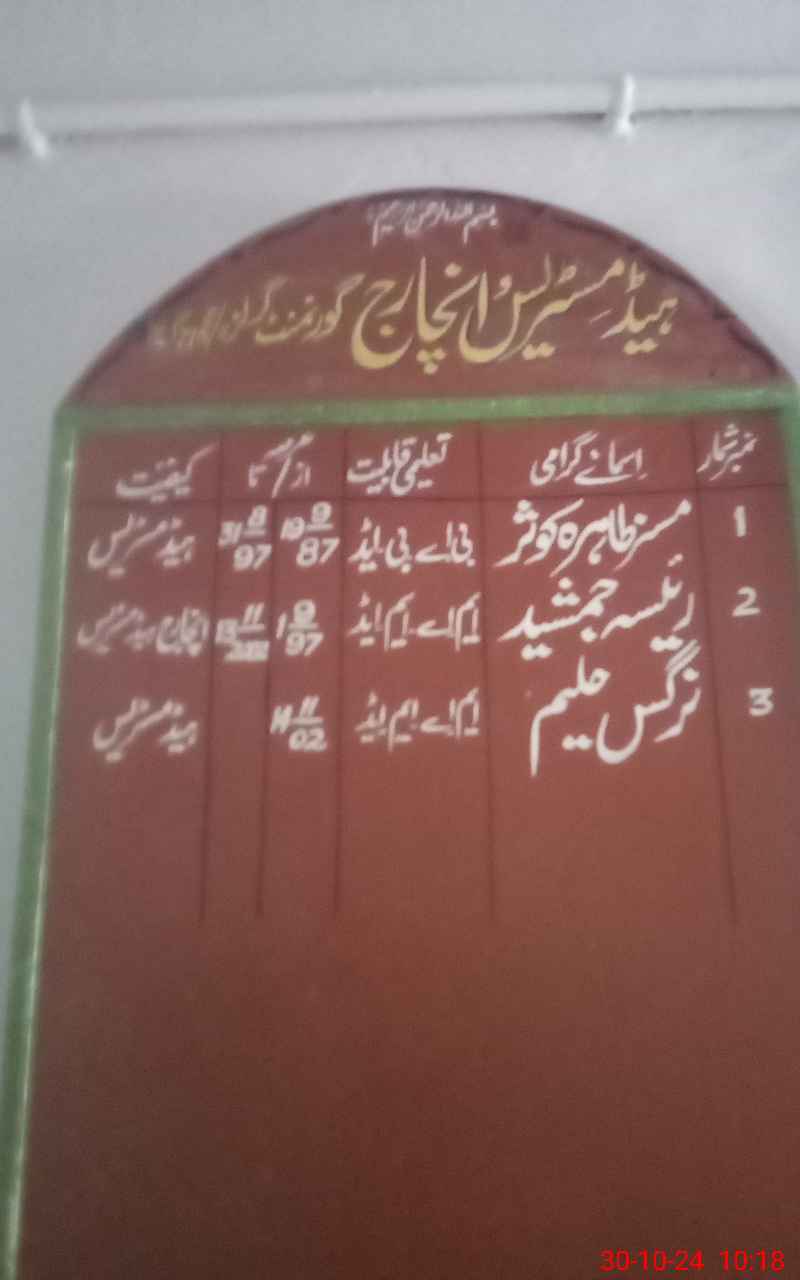 بسم اللہ الرحمن الرحیم
ہیڈ مسٹریس انچارج گورنمنٹ گرلز
نمبر شمار اسمائے گرامی تعلیمی قابلیت از عرصہ تا کیفیت
1 مسز طاہرہ کوثر بی اے بی ایڈ 19 9/87 31 8/97 ہیڈ مسٹریس
2 رئیسہ جمشید ایم اے ایم ایڈ 1 9/97 11 انچارج ہیڈ مسٹریس
3 نرگس حلیم ایم اے ایم ایڈ 14 11/02 ہیڈ مسٹریس
30-10-24 10:18